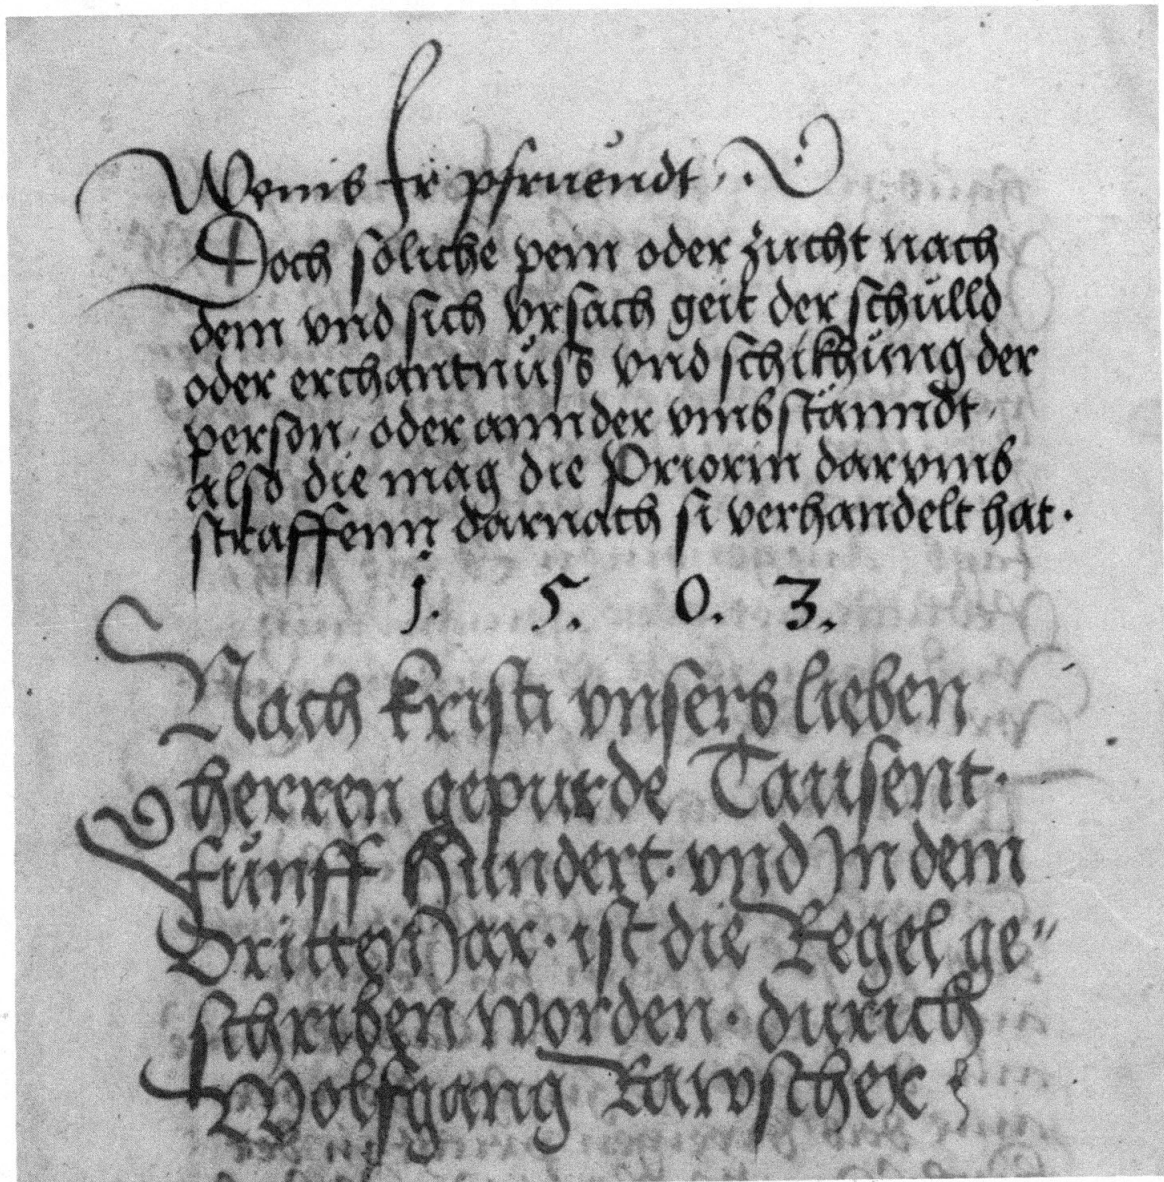 Wenis Ir pfruendt
Doch söliche pein oder zucht nach
dem vnd sich vrsach geit der schulld
oder erchantnuss vnd schikhung der
person, oder annder vmbstänndt,
also die mag die Priorin darvmb
straffenn darnach si verhandelt hat.
1. 5. 0. 3.
Nach kristi vnsers lieben
herren gepurde Tausent.
fünff Hundert. vnd In dem
Dritten Jar. ist die Regel ge"
schriben worden. durich
Wolfgang Rawscher